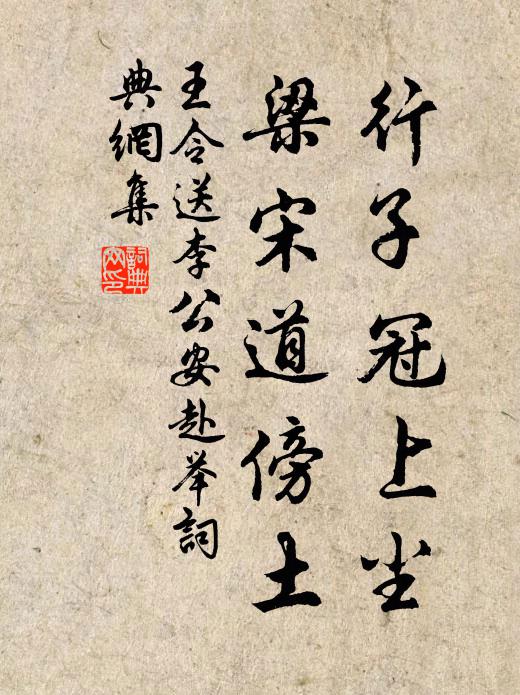 行子冠上尘
梁宋道傍土
王令送李公安赴举詞
典網集
詞典网印